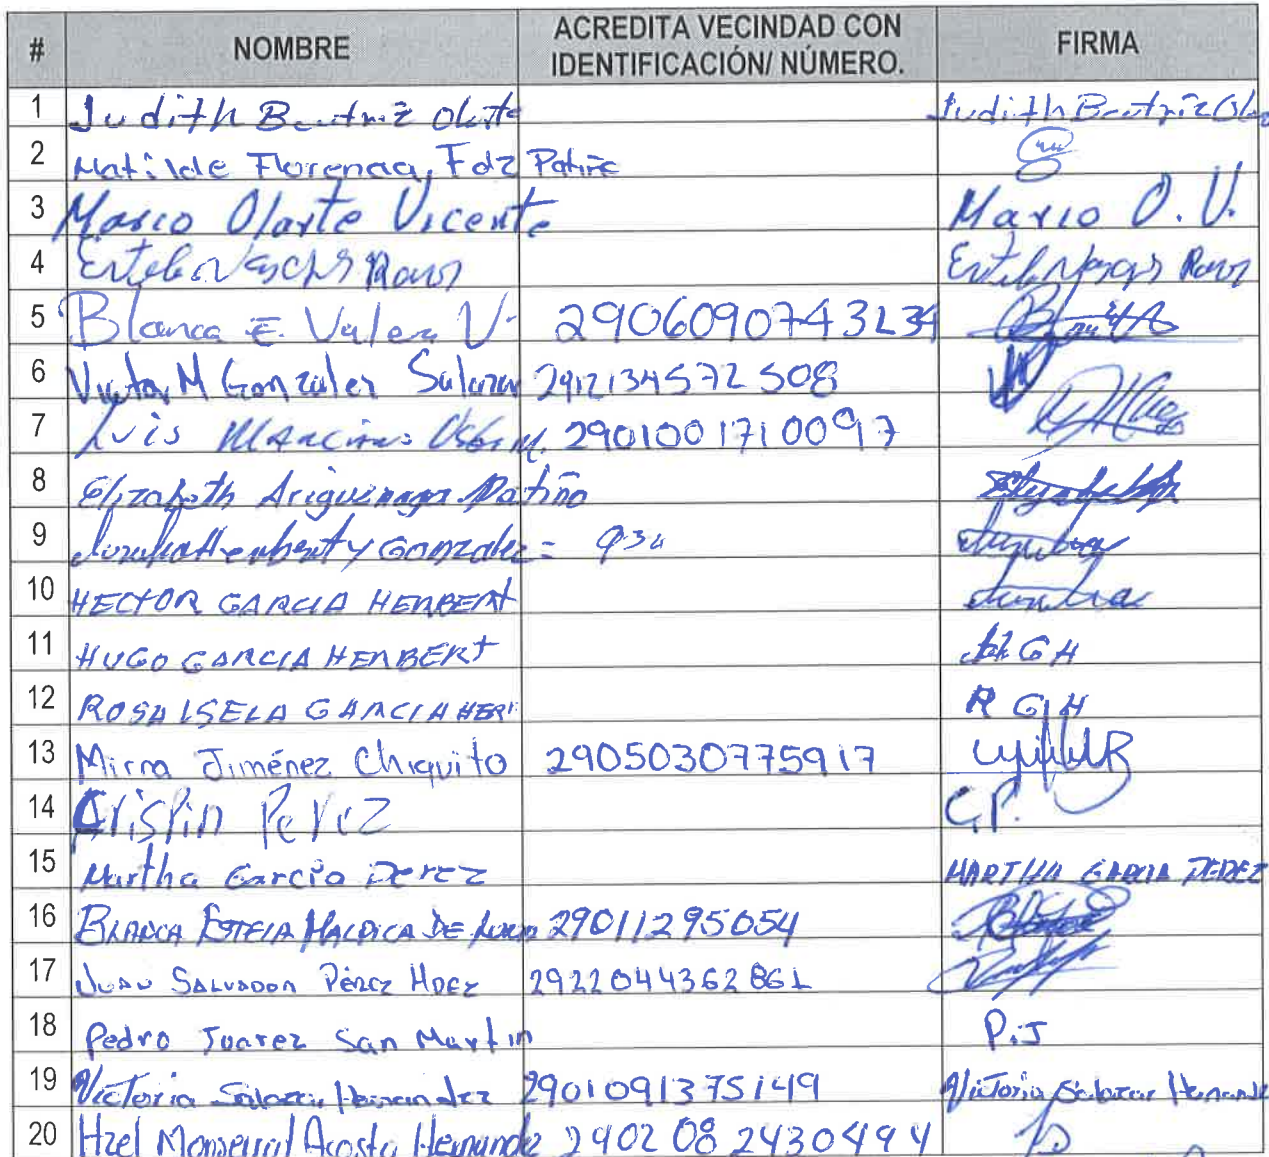 # NOMBRE ACREDITA VECINDAD CON IDENTIFICACIÓN/ NÚMERO. FIRMA
1 Judith Beatriz Olarte Judith Beatriz
2 Matilde Florencia, Fdz Patiño
3 Marco Olarte Vicente Mario O. V.
4
5 Blanca E. Valez V. 2906090743234
6 Victor M Gonzalez Salazar 2912134572508
7 Luis 2901001710097
8 Elizabeth Patiño
9 Herbert y Gonzalez =
10 HECTOR GARCIA HERBERT
11 HUGO GARCIA HERBERT GH
12 ROSA ISELA GARCIA HER R G H
13 Mirna Jiménez Chiquito 2905030775917
14 Crispin Perez C.P.
15 Martha Garcia Perez MARTHA GARCIA PEREZ
16 BLANCA ESTELA MALPICA DE 290112950 54
17 JUAN SALVADOR PÉREZ HDEZ 2922044362861
18 Pedro Juarez San Martin P.J
19 Victoria Salazar Hernandez 2901091375149 Victoria Salazar
20 Monserrat Acosta Hernande 2902082430494